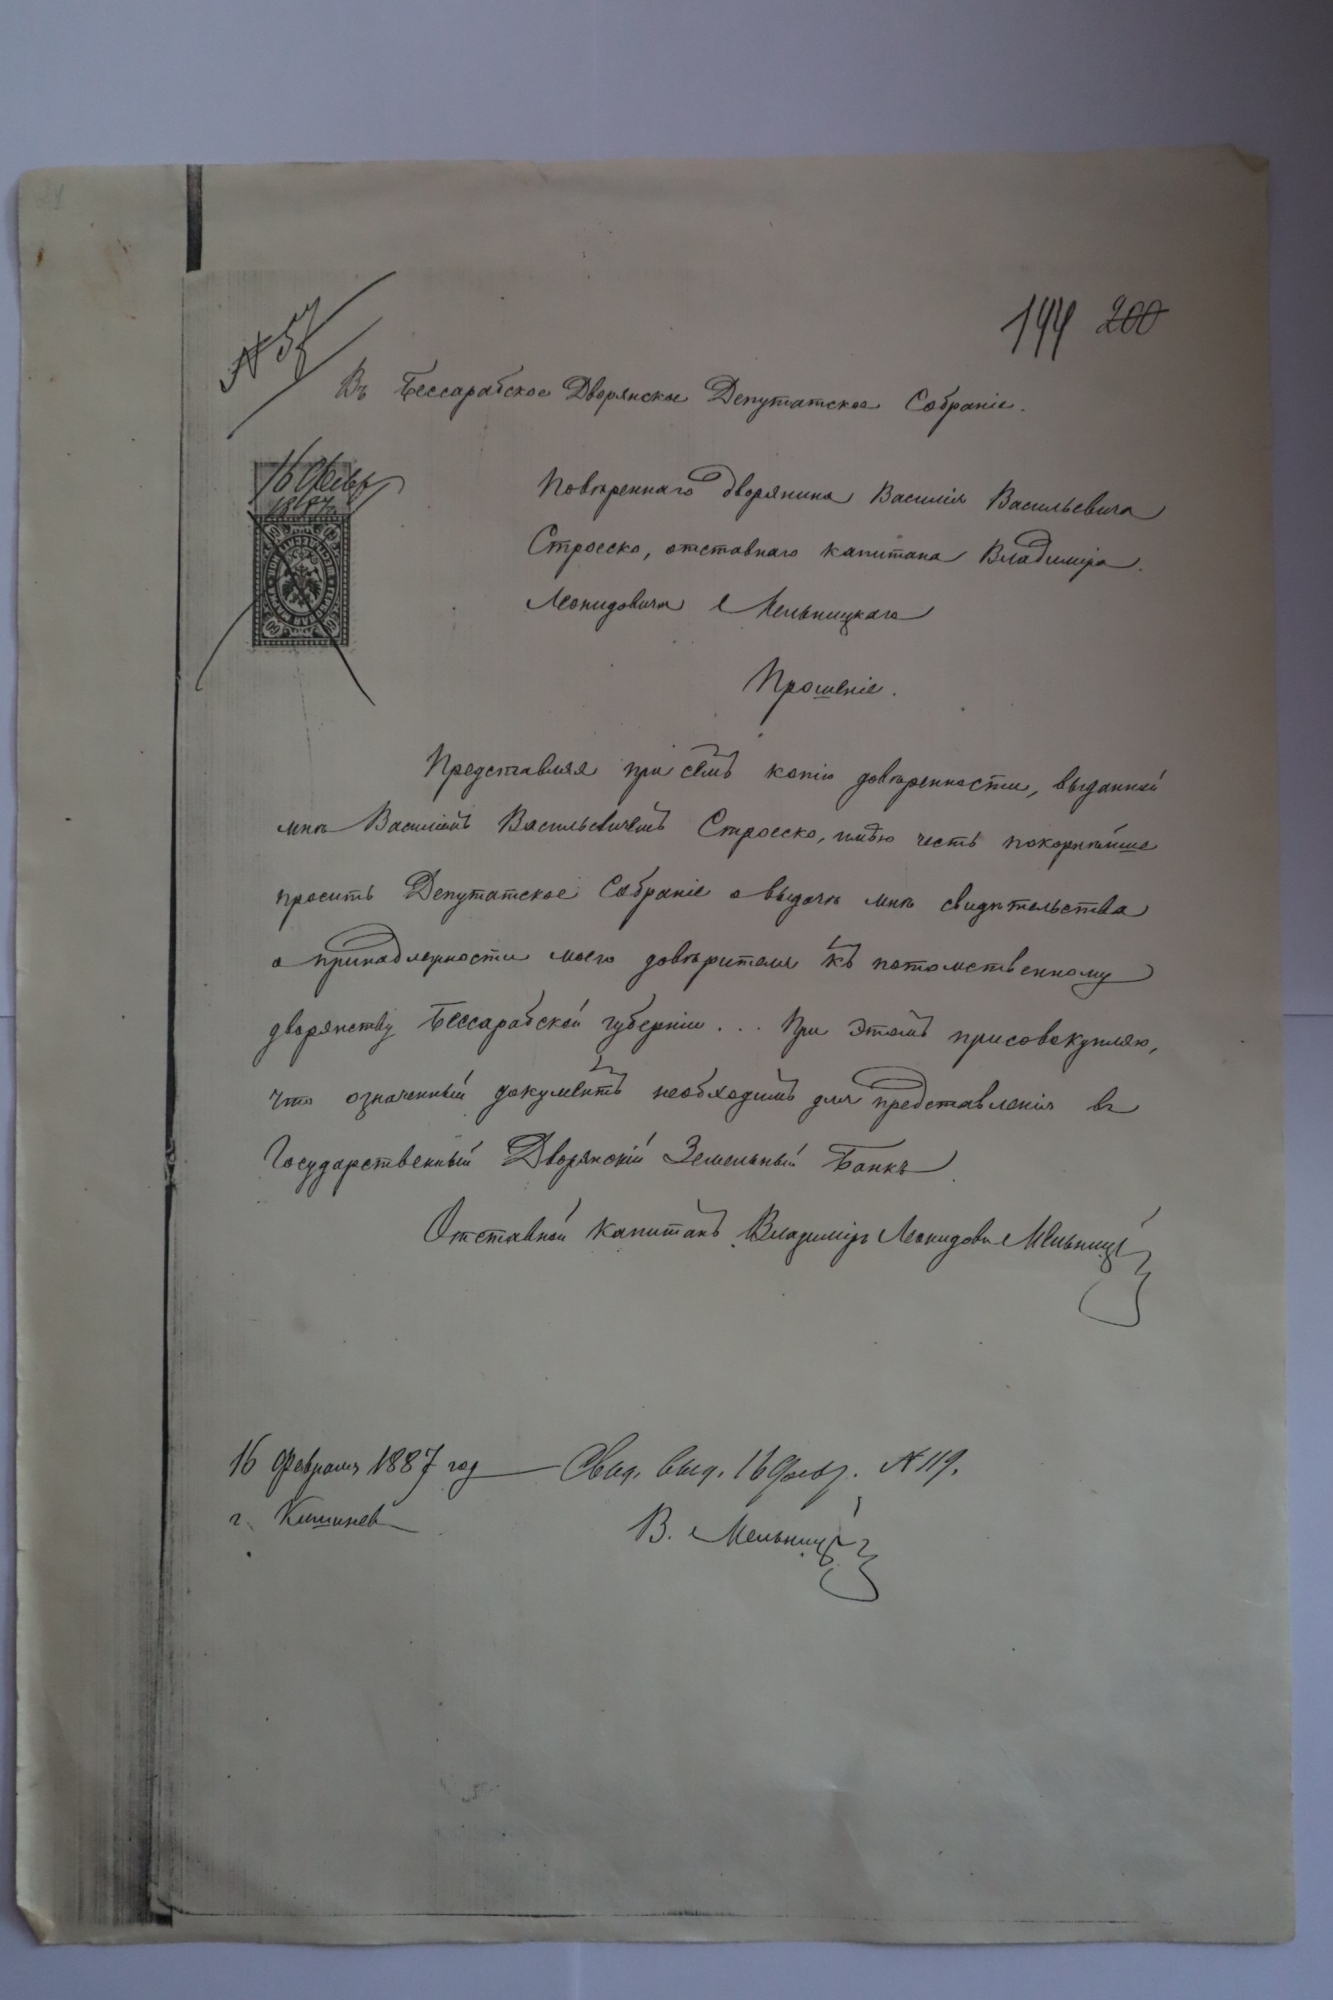 № 57
144 200
Въ Бессарабское Дворянское Депутатское Собраніе.
16 Февр
1887
60 60
60 60
Повѣреннаго дворянина Василія Васильевича
Строеско, отставнаго капитана Владиміра
Леонидовича Мельницкаго
Прошеніе.
Представляя при семъ копію довѣренности, выданной
мнѣ Василіемъ Васильевичемъ Строеско, имѣю честь покорнѣйше
просить Депутатское Собраніе о выдачѣ мнѣ свидѣтельства
о принадлежности моего довѣрителя къ потомственному
дворянству Бессарабской губерніи... При этомъ присовокупляю,
что означенный документъ необходимъ для представленія въ
Государственный Дворянскій Земельный Банкъ.
Отставной капитанъ Владиміръ Леонидовъ Мельницкій
16 Февраля 1887 год — Свид. выд. 16 Февр. № 119.
г. Кишинев
В. Мельницкій